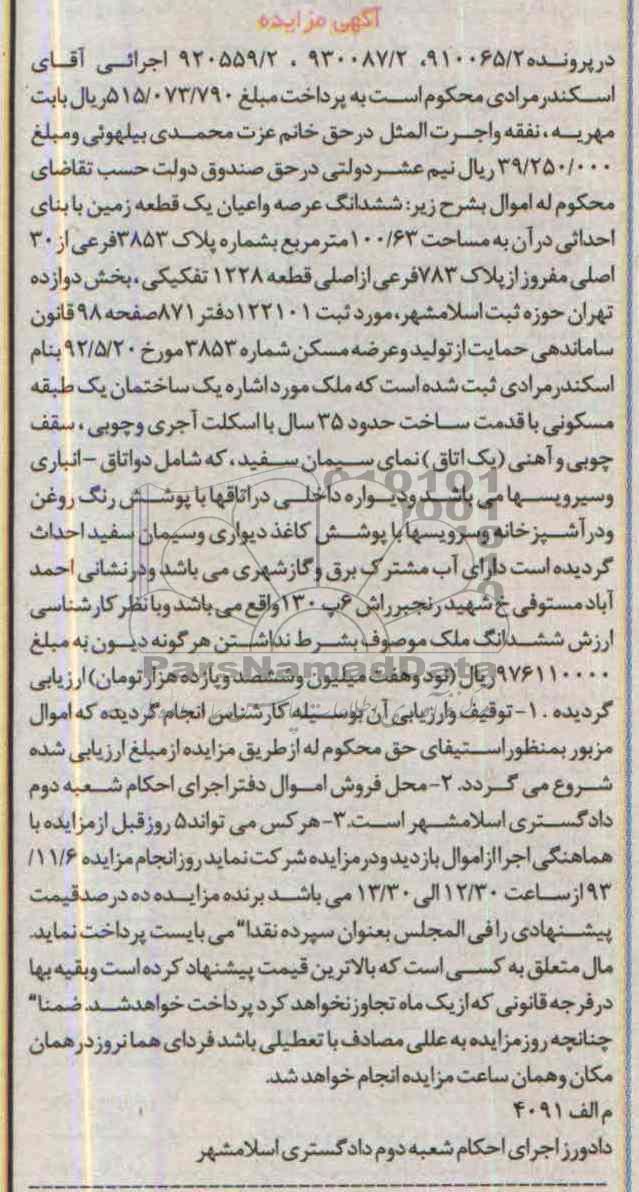 آگهی مزایده
درپرونده۹۱۰۰۶۵/۲، ۹۳۰۰۸۷/۲ ، ۹۲۰۵۵۹/۲ اجرائی آقای
اسکندرمرادی محکوم است به پرداخت مبلغ ۵۱۵/۰۷۳/۷۹۰ریال بابت
مهریه ، نفقه واجرت المثل درحق خانم عزت محمدی بیلهوئی ومبلغ
۳۹/۲۵۰/۰۰۰ ریال نیم عشر دولتی درحق صندوق دولت حسب تقاضای
محکوم له اموال بشرح زیر: ششدانگ عرصه واعیان یک قطعه زمین با بنای
احداثی درآن به مساحت ۱۰۰/۶۳مترمربع بشماره پلاک ۳۸۵۳فرعی از ۳۰
اصلی مفروز از پلاک ۷۸۳فرعی ازاصلی قطعه ۱۲۲۸ تفکیکی ، بخش دوازده
تهران حوزه ثبت اسلامشهر، مورد ثبت ۱۲۲۱۰۱ دفتر ۸۷۱صفحه ۹۸ قانون
ساماندهی حمایت از تولید وعرضه مسکن شماره ۳۸۵۳مورخ ۹۲/۵/۲۰ بنام
اسکندرمرادی ثبت شده است که ملک مورد اشاره یک ساختمان یک طبقه
مسکونی با قدمت ساخت حدود ۳۵ سال با اسکلت آجری وچوبی ، سقف
چوبی و آهنی (یک اتاق ) نمای سیمان سفید ، که شامل دواتاق – انباری
وسیرویسها می باشد ودیواره داخلی دراتاقها با پوشش رنگ روغن
ودرآشپزخانه وسرویسها با پوشش کاغذ دیواری وسیمان سفید احداث
گردیده است دارای آب مشترک برق وگازشهری می باشد ودرنشانی احمد
آباد مستوفی خ شهید رنجبر راش ۶پ ۱۳۰واقع می باشد وبا نظر کارشناسی
ارزش ششدانگ ملک موصوف بشرط نداشتن هرگونه دیون به مبلغ
۹۷۶۱۱۰۰۰۰ریال (نود وهفت میلیون وششصد ویازده هزارتومان) ارزیابی
گردیده . ۱- توقیف وارزیابی آن بوسیله کارشناس انجام گردیده که اموال
مزبور بمنظوراستیفای حق محکوم له ازطریق مزایده ازمبلغ ارزیابی شده
شروع می گردد. ۲- محل فروش اموال دفتراجرای احکام شعبه دوم
دادگستری اسلامشهر است. ۳- هرکس می تواند۵ روزقبل ازمزایده با
هماهنگی اجرا ازاموال بازدید ودرمزایده شرکت نماید روزانجام مزایده ۱۱/۶/
۹۳ ازساعت ۱۲/۳۰ الی ۱۳/۳۰ می باشد برنده مزایده ده درصد قیمت
پیشنهادی را فی المجلس بعنوان سپرده نقدا“ می بایست پرداخت نماید.
مال متعلق به کسی است که بالاترین قیمت پیشنهاد کرده است وبقیه بها
درفرجه قانونی که ازیک ماه تجاوزنخواهد کرد پرداخت خواهدشد. ضمنا“
چنانچه روزمزایده به عللی مصادف با تعطیلی باشد فردای همانروز درهمان
مکان وهمان ساعت مزایده انجام خواهد شد.
م الف ۴۰۹۱
دادورز اجرای احکام شعبه دوم دادگستری اسلامشهر
ParsNamadData